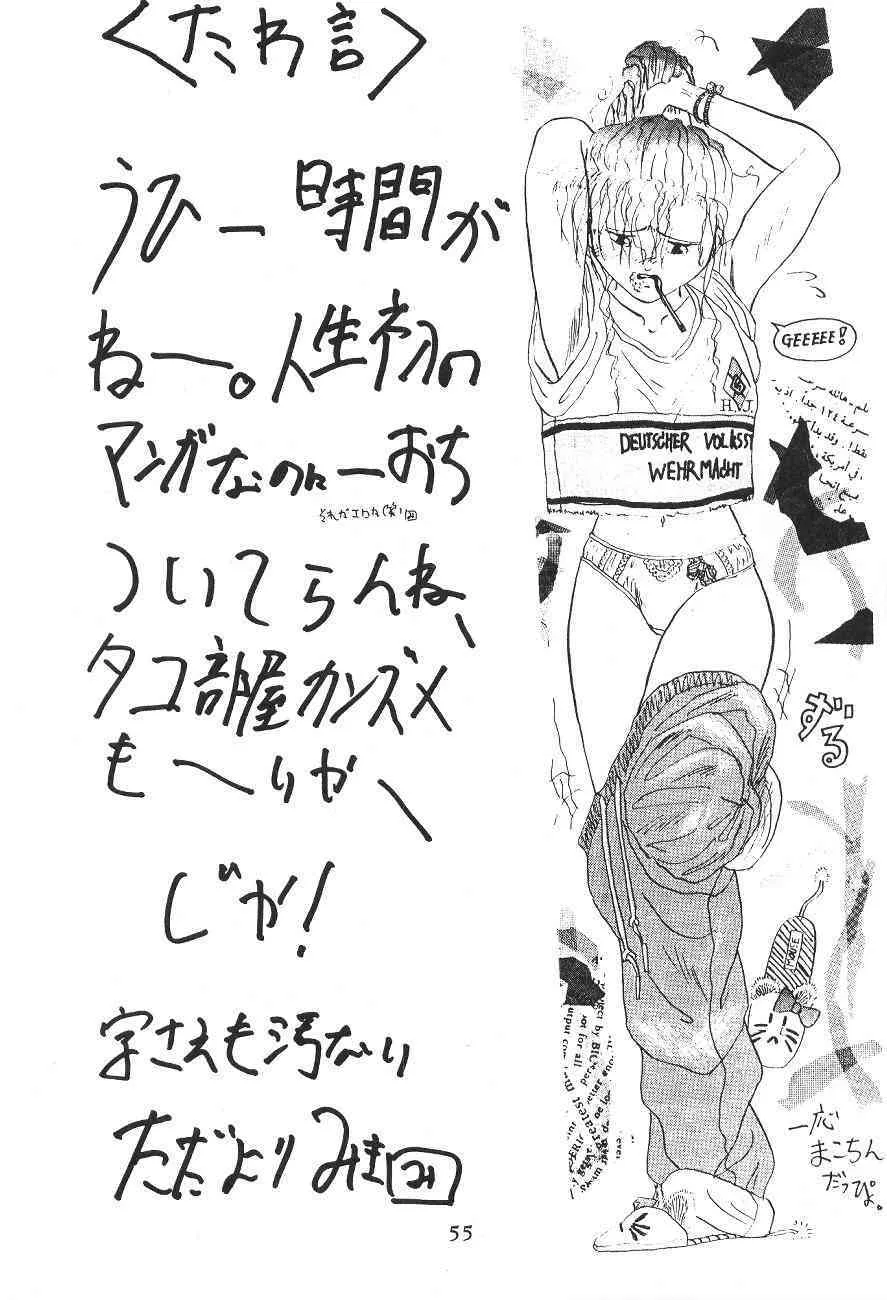 〈たわ言〉
うひー時間が
ねー。人生初の
マンガなのにーおち
ついてらんね、
タコ部屋カンズメ
も〜りか、
じか!
字さえも汚ない
ただよりみき
GEEEEE!
H.J.
DEUTSCHER VOLKSST
WEHRMACHT
ずる
一応
まこちん
だっぴょ。
55